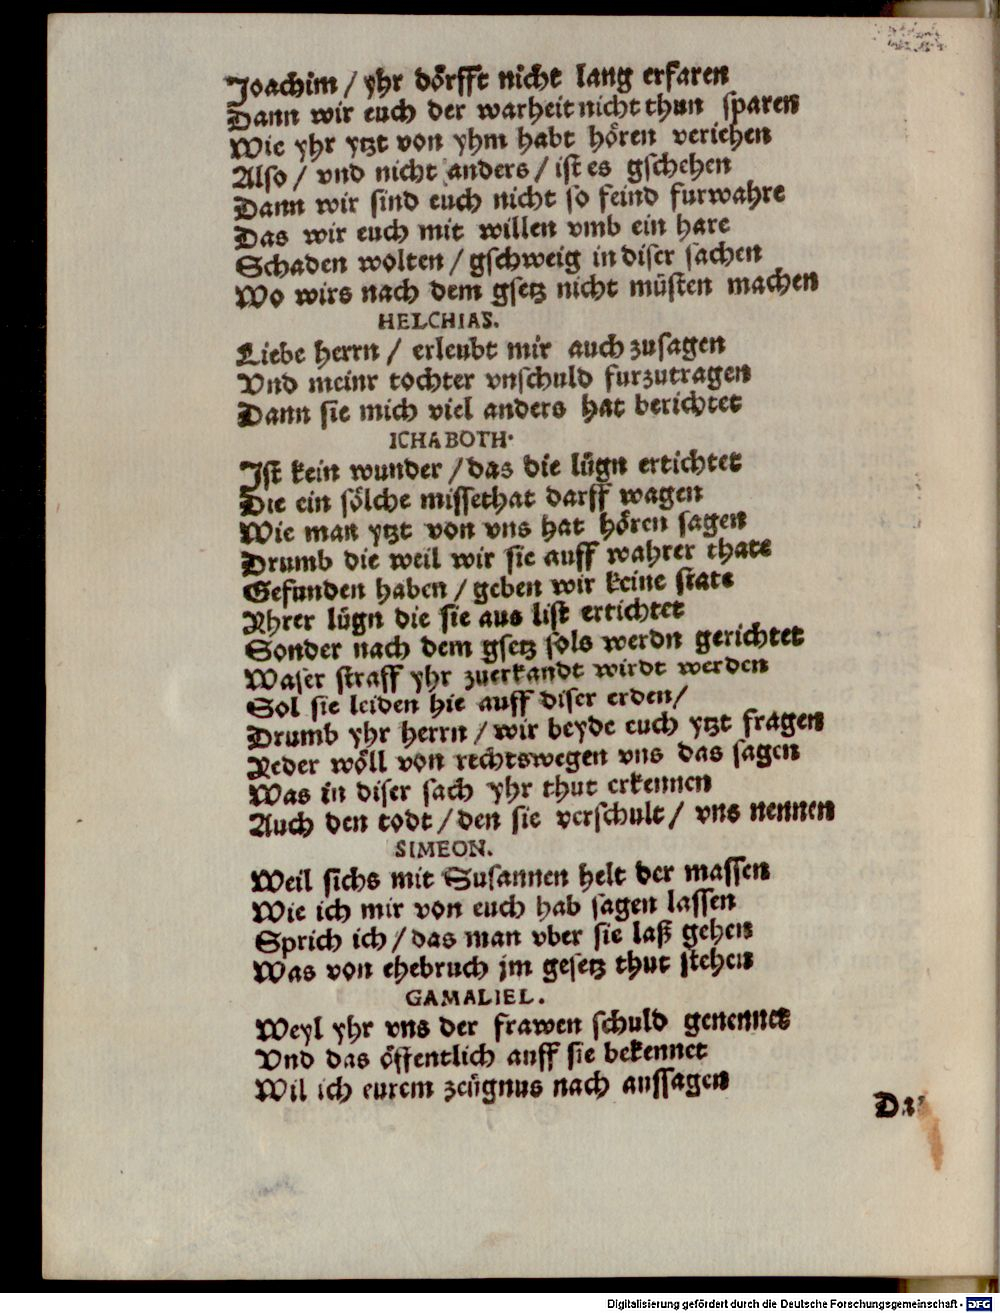 Joachim / yhr dörfft nicht lang erfaren
Dann wir euch der warheit nicht thun sparen
Wie yhr ytzt von yhm habt hören veriehen
Also / vnd nicht anders / ist es gschehen
Dann wir sind euch nicht so feind furwahre
Das wir euch mit willen vmb ein hare
Schaden wolten / gschweig in diser sachen
Wo wirs nach dem gsetz nicht müsten machen
HELCHIAS.
Liebe herrn / erleubt mir auch zusagen
Vnd meinr tochter vnschuld furzutragen
Dann sie mich viel anders hat berichtet
ICHABOTH.
Ist kein wunder / das die lügn ertichtet
Die ein sölche missethat darff wagen
Wie man ytzt von vns hat hören sagen
Drumb die weil wir sie auff wahrer thate
Gefunden haben / geben wir keine state
Yhrer lügn die sie aus list ertichtet
Sonder nach dem gsetz sols werdn gerichtet
Waser straff yhr zuerkandt wirdt werden
Sol sie leiden hie auff diser erden /
Drumb yhr herrn / wir beyde euch ytzt fragen
Yeder wöll von rechtswegen vns das sagen
Was in diser sach yhr thut erkennen
Auch den todt / den sie verschult / vns nennen
SIMEON.
Weil sichs mit Susannen helt der massen
Wie ich mir von euch hab sagen lassen
Sprich ich / das man vber sie laß gehen
Was von ehebruch jm gesetz thut stehen
GAMALIEL.
Weyl yhr vns der frawen schuld genennet
Vnd das öffentlich auff sie bekennet
Wil ich eurem zeügnus nach aussagen
Digitalisierung gefördert durch die Deutsche Forschungsgemeinschaft - DFG